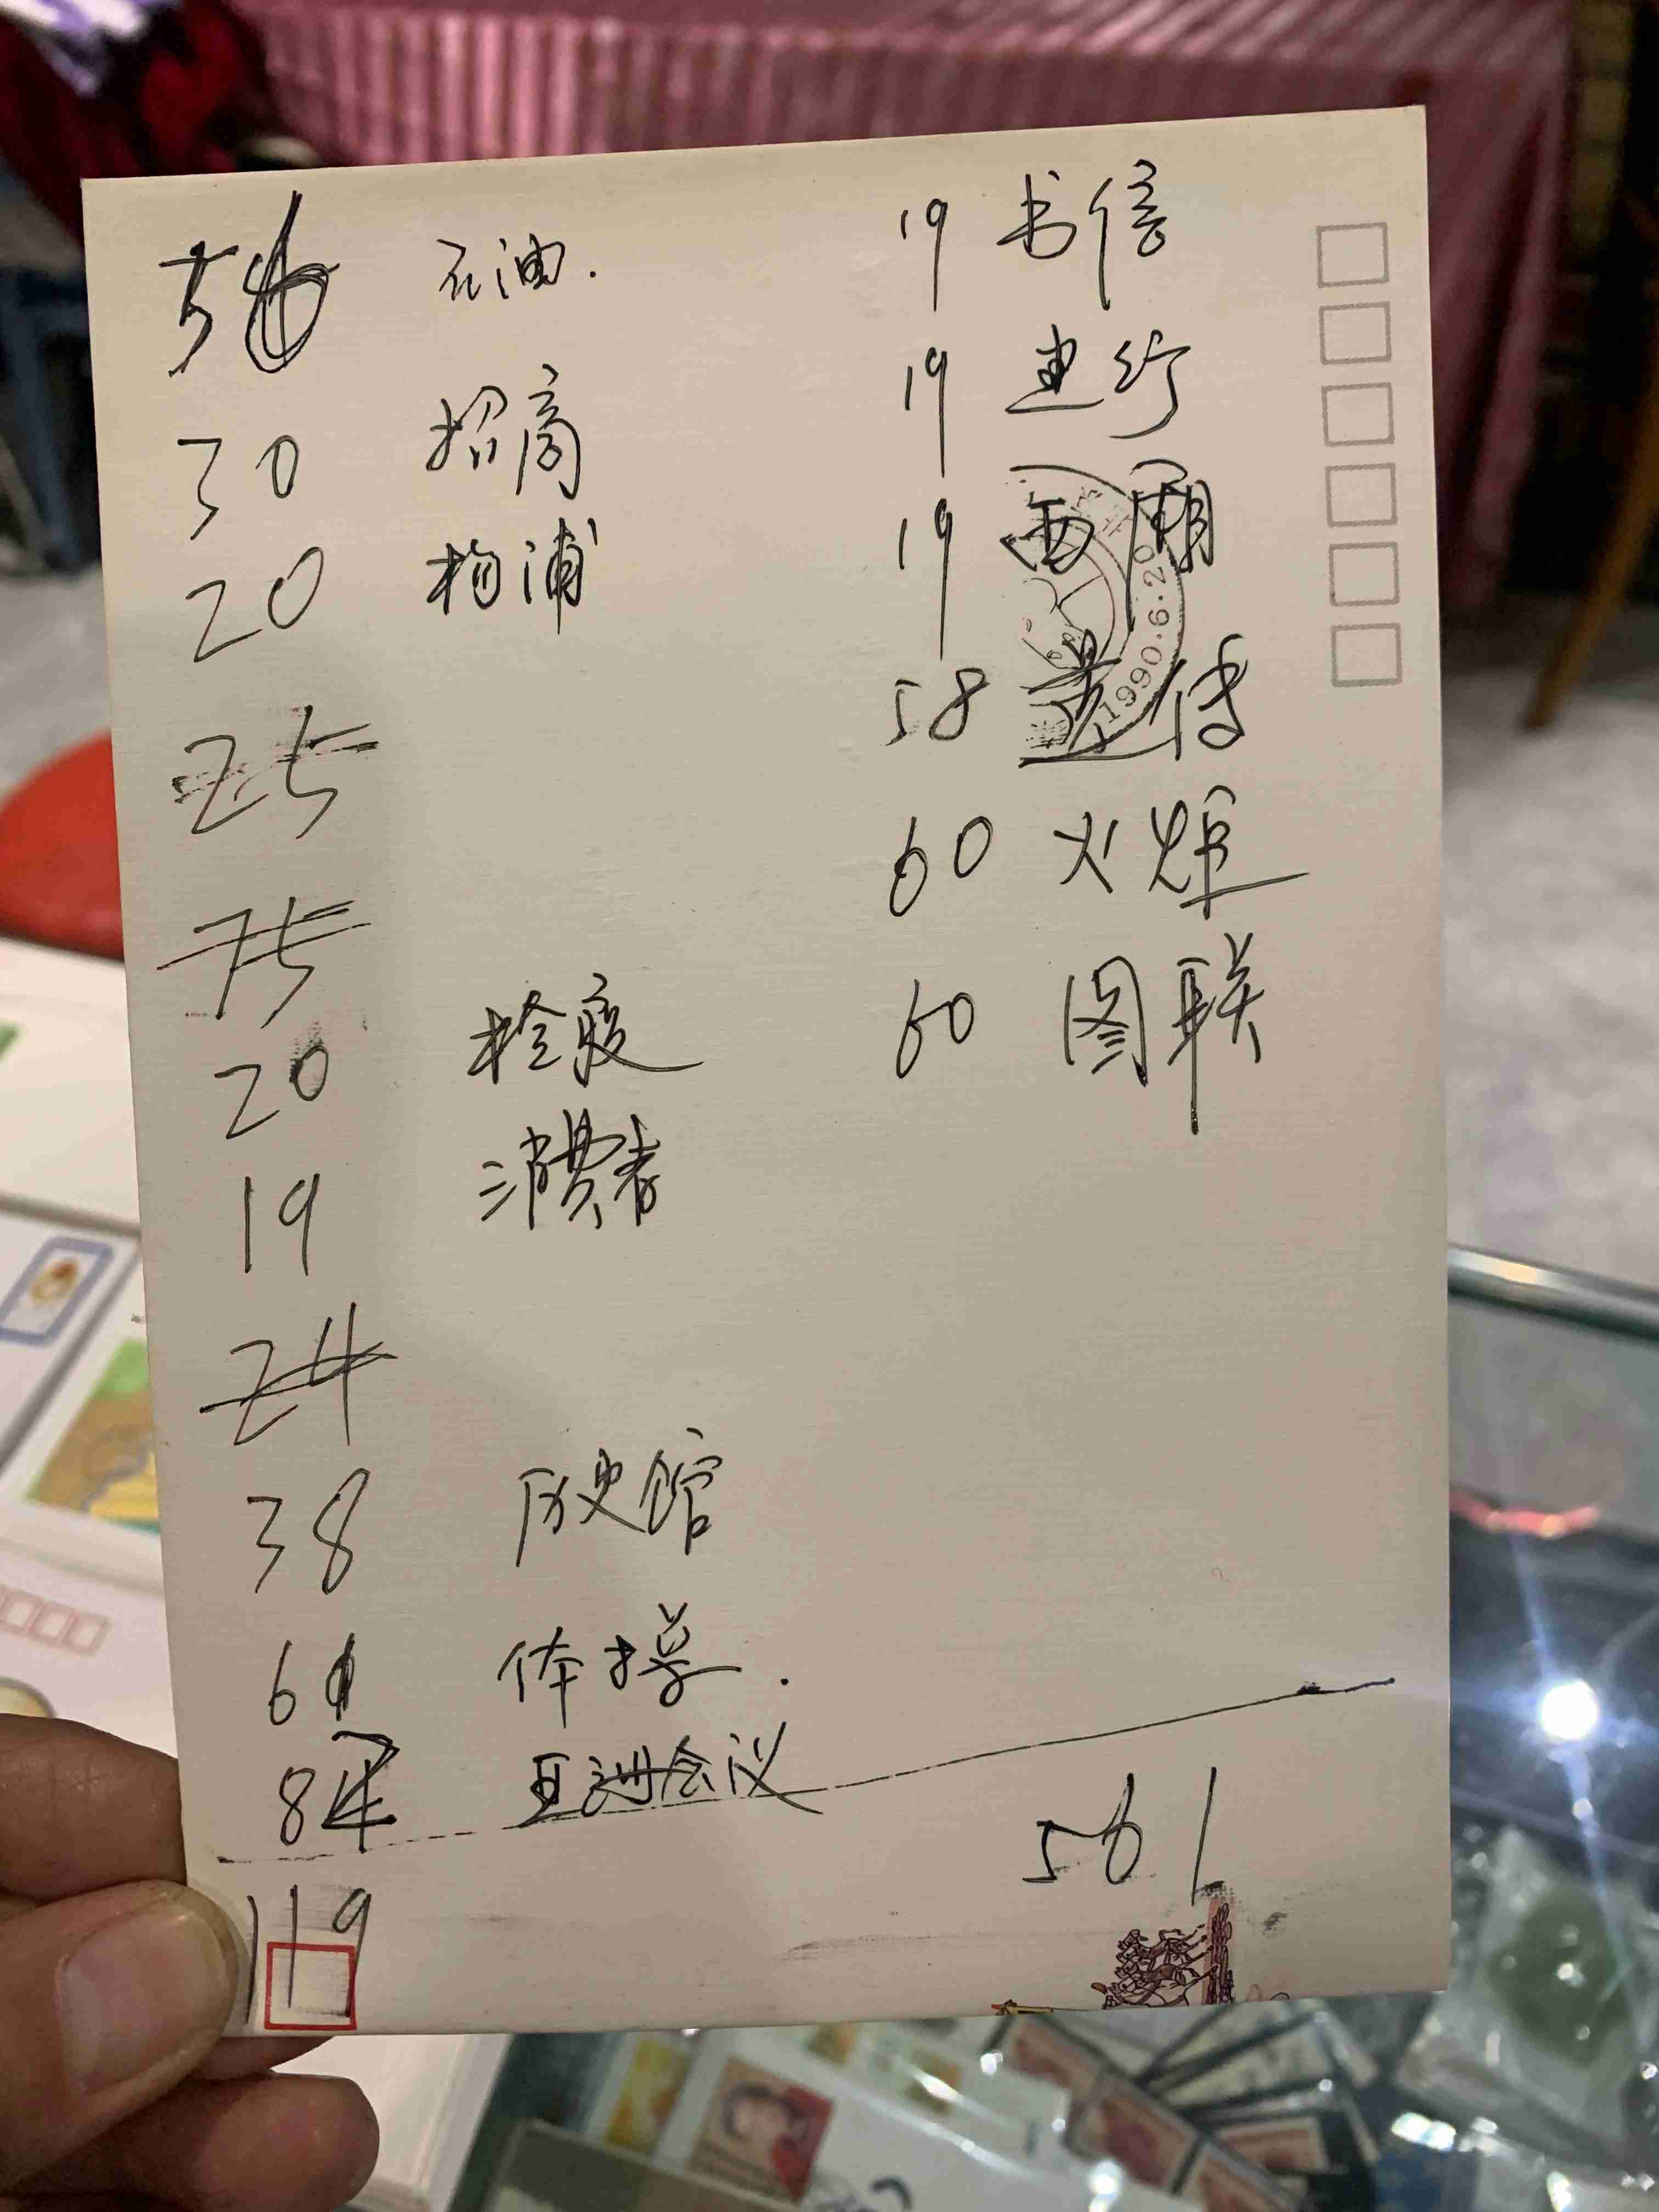 56 石油.
30 招商
20 杨浦
25
75
20 检疫
19 消费者
24
38 历史馆
60 体操.
84 亚洲会议
19 书信
19 建行
19 西厢
58 遗传
60 火炬
60 图联
1990.6.20
561
119